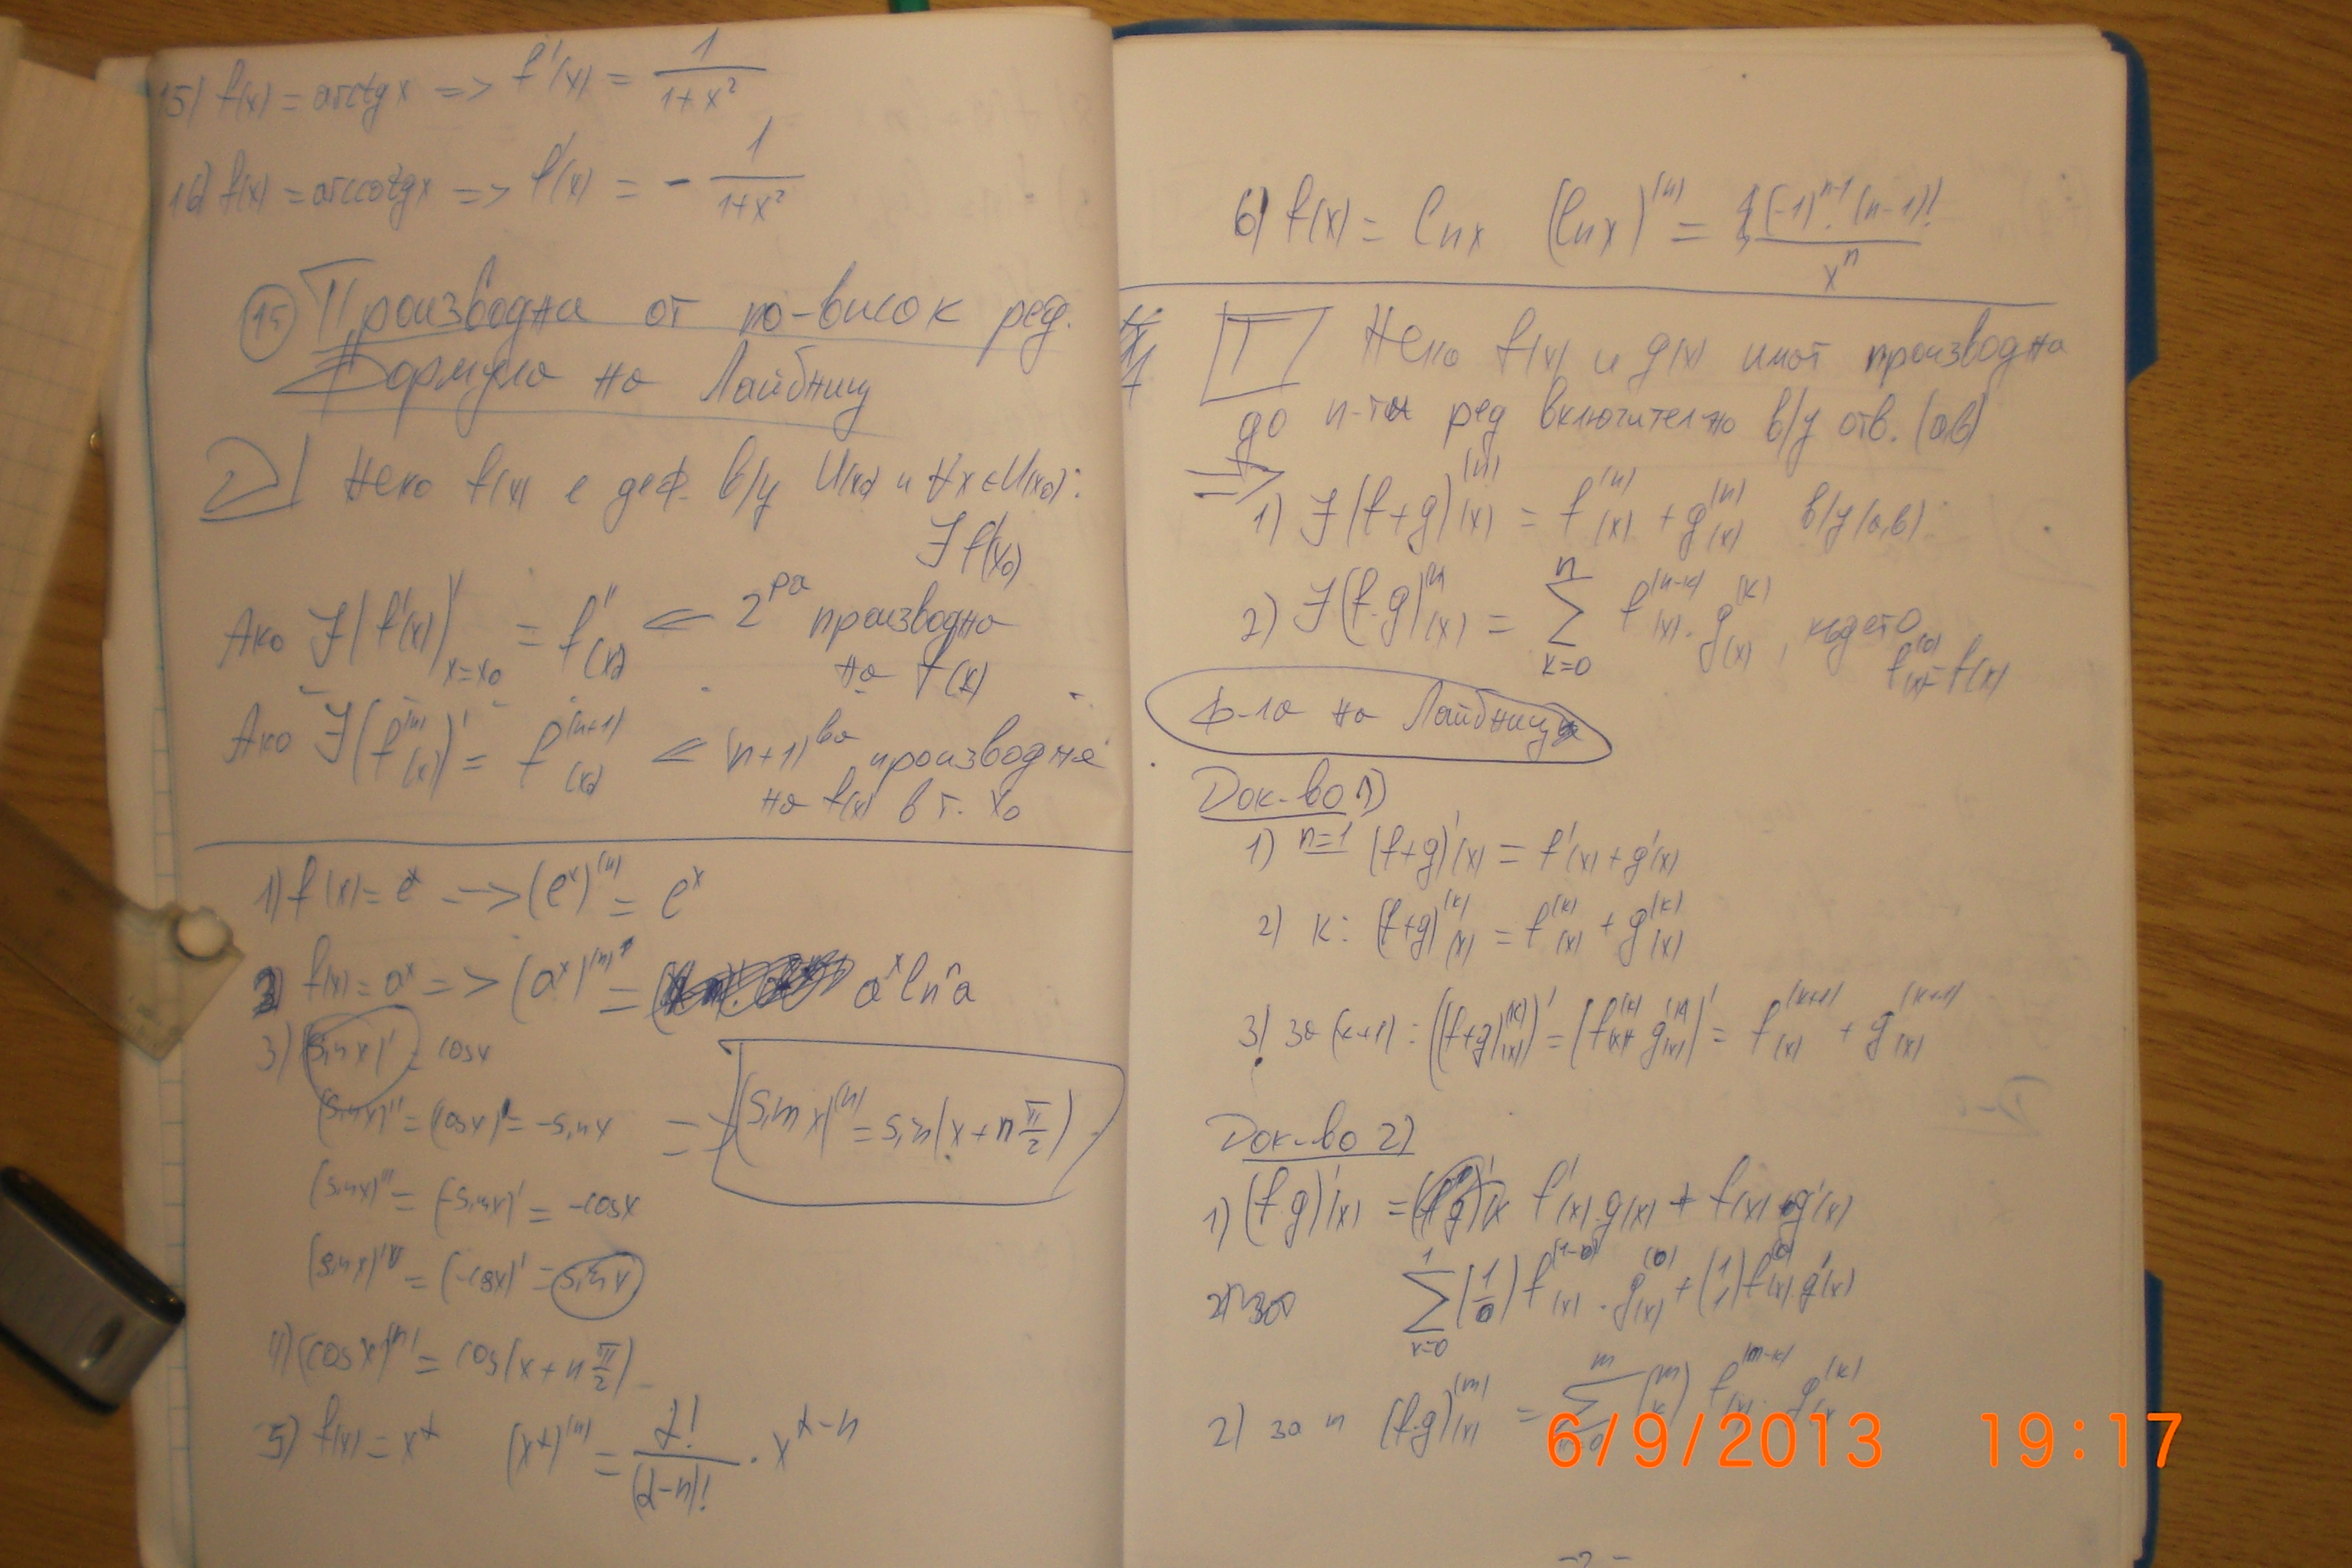 15) f(x) = arctgx => f'(x) = 1/(1+x²)
16) f(x) = arccotgx => f'(x) = - 1/(1+x²)
(15) Производна от по-висок ред.
Формула на Лайбниц
D Нека f(x) е деф. в/у U(x₀) и ∀x∈U(x₀):
∃ f'(x₀)
Ако ∃ (f'(x))'ₓ₌ₓ₀ = f''(x₀) <= 2ра производна
на f(x)
Ако ∃ (f⁽ⁿ⁾(x))' = f⁽ⁿ⁺¹⁾(x₀) <= (n+1)ва производна
на f(x) в т. x₀
1) f(x) = eˣ —> (eˣ)⁽ⁿ⁾ = eˣ
2) f(x) = aˣ => (aˣ)⁽ⁿ⁾ = aˣ lnⁿa
3) (sinx)' = cosx
(sinx)'' = (cosx)' = -sinx => (sin x)⁽ⁿ⁾ = sin(x + n π/2)
(sinx)''' = (-sinx)' = -cosx
(sinx)ᴵⱽ = (-cosx)' = sinx
4) (cosx)⁽ⁿ⁾ = cos(x + n π/2)
5) f(x) = x^α (x^α)⁽ⁿ⁾ = α!/(α-n)! . x^(α-n)
6) f(x) = lnx (lnx)⁽ⁿ⁾ = (-1)ⁿ⁻¹.(n-1)!/xⁿ
T Нека f(x) и g(x) имат производна
до n-ти ред включително в/у отв. (a,b)
=>
1) ∃ (f+g)⁽ⁿ⁾(x) = f⁽ⁿ⁾(x) + g⁽ⁿ⁾(x) в/у (a,b).
2) ∃ (f.g)⁽ⁿ⁾(x) = Σₖ₌₀ⁿ f⁽ⁿ⁻ᵏ⁾(x). g⁽ᵏ⁾(x), където
f⁽⁰⁾(x) = f(x)
Ф-ла на Лайбниц
Док-во 1)
1) n=1 (f+g)'(x) = f'(x) + g'(x)
2) k: (f+g)⁽ᵏ⁾(x) = f⁽ᵏ⁾(x) + g⁽ᵏ⁾(x)
3) за (k+1): ((f+g)⁽ᵏ⁾(x))' = (f⁽ᵏ⁾(x)+ g⁽ᵏ⁾(x))' = f⁽ᵏ⁺¹⁾(x) + g⁽ᵏ⁺¹⁾(x)
Док-во 2)
1) (f.g)'(x) = f'(x).g(x) + f(x).g'(x)
Σₖ₌₀¹ (1 0) f⁽¹⁻⁰⁾(x) . g⁽⁰⁾(x) + (1 1) f⁽⁰⁾(x).g'(x)
2) за m (f.g)⁽ᵐ⁾(x) = Σᵐ (m k) f⁽ᵐ⁻ᵏ⁾(x) . g⁽ᵏ⁾(x)
6/9/2013 19:17